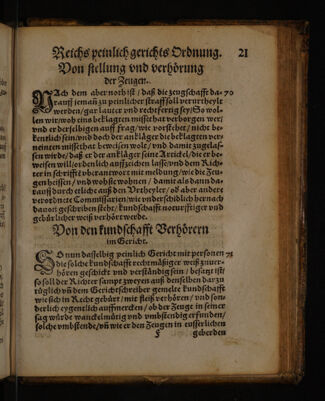 Reichs peinlich gerichts Ordnung. 21
Von stellung vnd verhörung
der Zeugen.
NAch dem aber noth ist / daß die zeugschafft da= 70
rauff jeman zu peinlicher straff soll verurtheylt
werden / gar lauter vnd rechtfertig sey / So wol=
len wir / wo eins beklagten missethat verborgen wer /
vnd er derselbigen auff frag / wie vorstehet / nicht be=
kentlich sein / vnd doch der ankläger die beklagten ver=
neinten missethat bewisen wolt / damit zugelas=
sen würde / daß er der ankläger seine Artickel / die er be=
weisen will / ordenlich auffzeichen lasse / vnd dem Rich=
ter in schrifft überantwort mit meldung / wie die Zeu=
gen heissen / vnd wo sie wohnen / damit als dann da=
rauff durch etliche auß den Vrtheyler / od aber andere
verordente Commissarien / wie vnderschidlich hernach
dauon geschriben stehe / kundschafft notturfftiger vnd
gebürlicher weiß verhört werde.
Von den kundschafft Verhörern
im Gericht.
SO nun dasselbig peinlich Gericht mit personen 71
die solche kundschafft rechtmässiger weiß zuuer=
hören geschickt vnd verständig sein / besetzt ist /
so soll der Richter sampt zweyen auß denselben darzu
tüglich vñ dem Gerichtschreiber gemelte kundschafft
wie sich in Recht gebürt / mit fleiß verhören / vnd son=
derlich eygentlich auffmercken / ob der Zeuge in seiner
sag würde wanckelmütig vnd vnbstendig erfunden /
solche vmbstende / vñ wie er den Zeugen in eusserlichen
F geberden